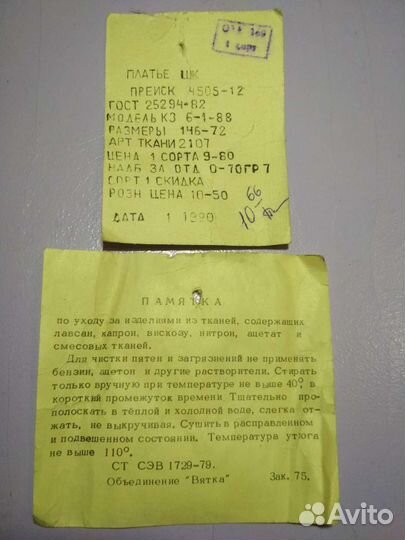 1 сорт
ПЛАТЬЕ ШК
ПРЕИСК 4505-12
ГОСТ 25294-82
МОДЕЛЬ КЗ 6-1-88
РАЗМЕРЫ 146-72
АРТ ТКАНИ 2107
ЦЕНА 1 СОРТА 9-80
НАДБ ЗА ОТД 0-70ГР 7
СОРТ 1 СКИДКА
РОЗН ЦЕНА 10-50
66
10-
ДАТА 1 1990
ПАМЯТКА
по уходу за изделиями из тканей, содержащих
лавсан, капрон, вискозу, нитрон, ацетат и
смесовых тканей.
Для чистки пятен и загрязнений не применять
бензин, ацетон и другие растворители. Стирать
только вручную при температуре не выше 40° в
короткий промежуток времени. Тщательно про-
полоскать в тёплой и холодной воде, слегка от-
жать, не выкручивая. Сушить в расправленном
и подвешенном состоянии. Температура утюга
не выше 110°.
СТ СЭВ 1729-79.
Объединение "Вятка" Зак. 75.
Avito